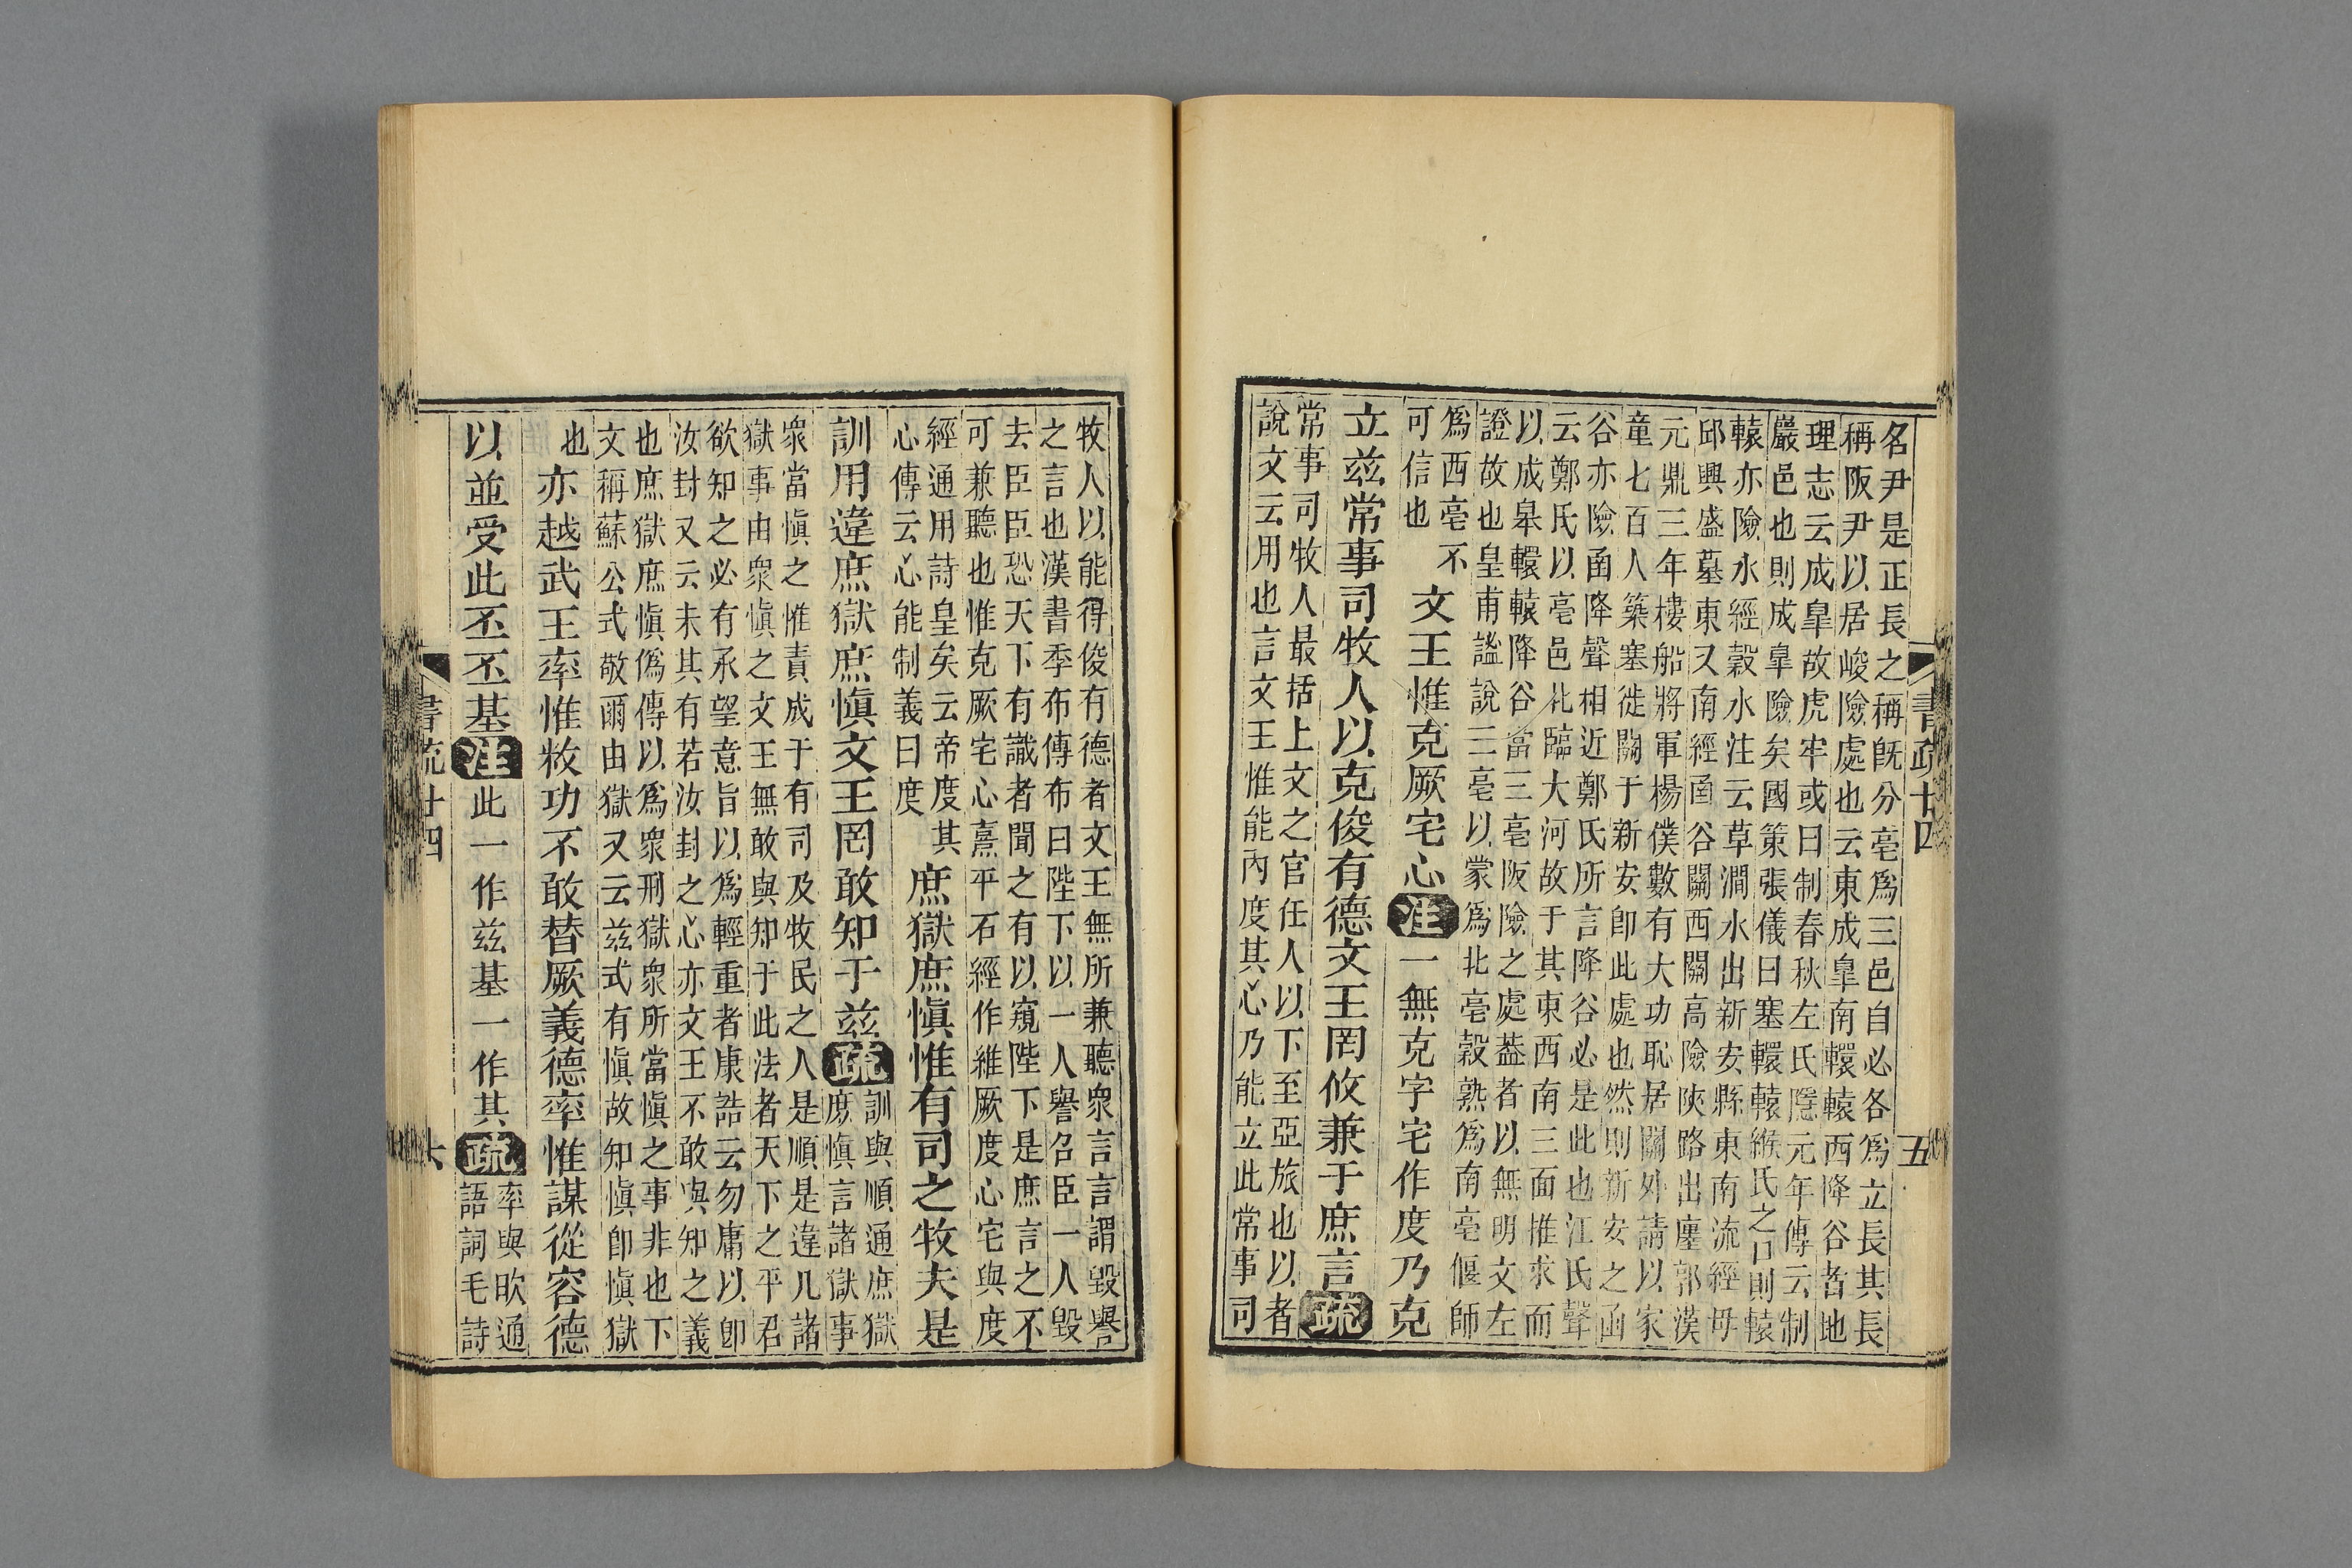 書疏廿四
五
名尹是正長之稱旣分亳爲三邑自必各爲立長其長
稱阪尹以居峻險處也云東成臯南轘轅西降谷者地
理志云成臯故虎牢或曰制春秋左氏隱元年傳云制
巖邑也則成臯險矣國策張儀曰塞轘轅緱氏之口則轘
轅亦險水經穀水注云草澗水出新安縣東南流經毋
邱興盛墓東又南經函谷關西關高險陜路出廛郭漢
元鼎三年樓船將軍楊僕數有大功恥居關外請以家
童七百人築塞徙關于新安卽此處也然則新安之函
谷亦險函降聲相近鄭氏所言降谷必是此也江氏聲
云鄭氏以亳邑北臨大河故于其東西南三面推求而
以成臯轘轅降谷當三亳阪險之處葢者以無明文左
證故也皇甫謐說三亳以蒙爲北亳穀熟爲南亳偃師
爲西亳不
可信也
文王惟克厥宅心注一無克字宅作度乃克
立茲常事司牧人以克俊有德文王罔攸兼于庶言疏
常事司牧人最括上文之官任人以下至亞旅也以者
說文云用也言文王惟能內度其心乃能立此常事司
牧人以能得俊有德者文王無所兼聽衆言言謂毀譽
之言也漢書季布傳布曰陛下以一人譽召臣一人毀
去臣臣恐天下有識者聞之有以窺陛下是庶言之不
可兼聽也惟克厥宅心熹平石經作維厥度心宅與度
經通用詩皇矣云帝度其
心傳云心能制義曰度
庶獄庶愼惟有司之牧夫是
訓用違庶獄庶愼文王罔敢知于茲疏
訓與順通庶獄
庶愼言諸獄事
衆當愼之惟責成于有司及牧民之人是順是違凡諸
獄事由衆愼之文王無敢與知于此法者天下之平君
欲知之必有承望意旨以爲輕重者康誥云勿庸以卽
汝封又云未其有若汝封之心亦文王不敢與知之義
也庶獄庶愼僞傳以爲衆刑獄衆所當愼之事非也下
文稱蘇公式敬爾由獄又云茲式有愼故知愼卽愼獄
也
亦越武王率惟敉功不敢替厥義德率惟謀從容德
以並受此丕丕基注此一作茲基一作其疏
率與欥通
語詞毛詩
書疏廿四
六